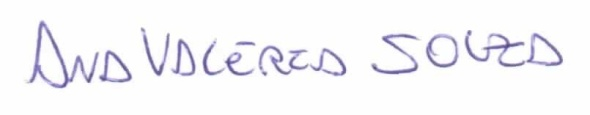 ANA VALÉRIA SOUZA